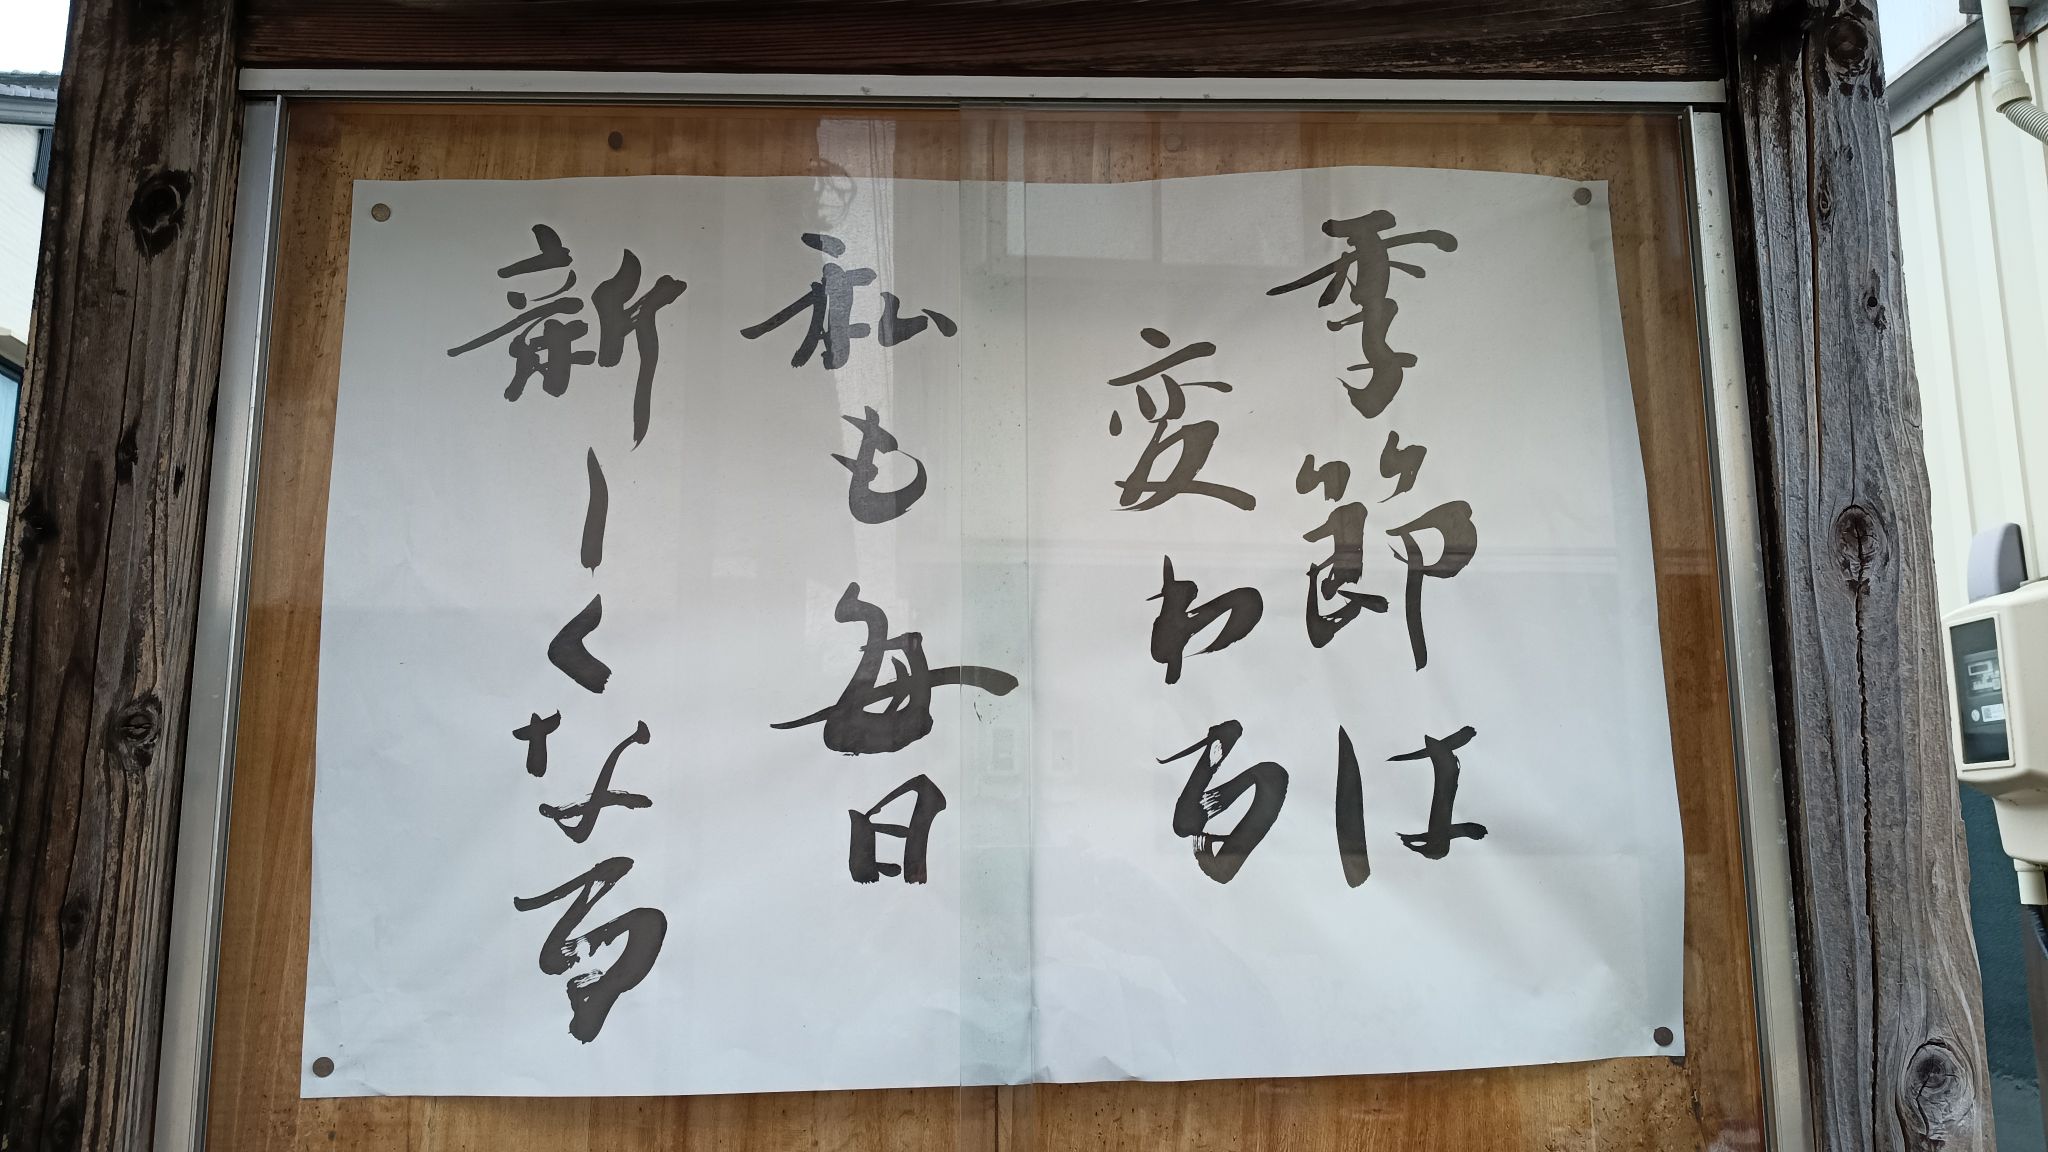 季節は
変わる
私も毎日
新しくなる